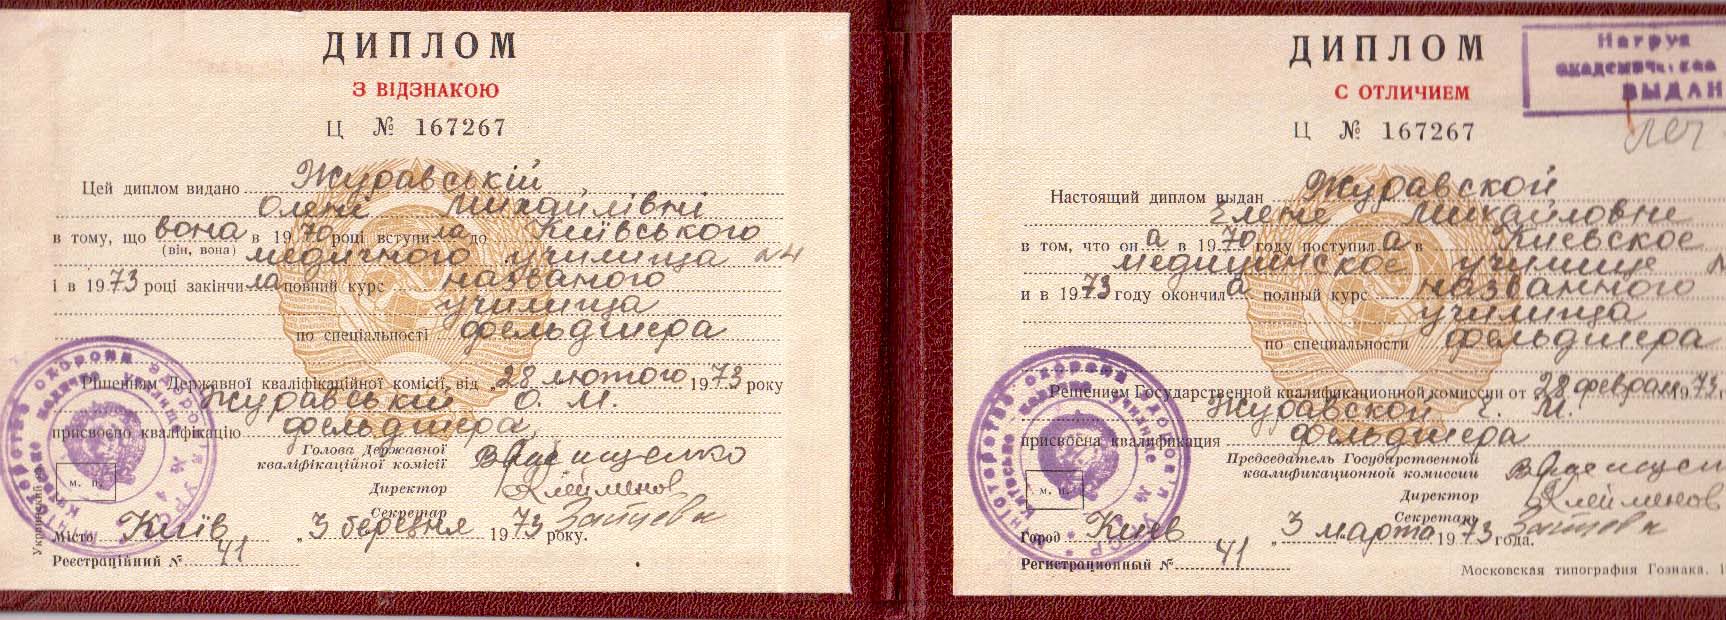 ДИПЛОМ
З ВІДЗНАКОЮ
Ц № 167267
Цей диплом видано Журавській
Олені Михайлівні
в тому, що вона в 1970 році вступила до Київського
(він, вона) медичного училища №4
і в 1973 році закінчила повний курс названого
училища
по спеціальності фельдшера
Рішенням Державної кваліфікаційної комісії від „28 лютого 1973 року
Журавській О. М.
присвоєно кваліфікацію фельдшера
Голова Державної
кваліфікаційної комісії
Директор Клейменов
Секретар Зайцева
м. п.
Місто Київ „3 березня 1973 року.
Реєстраційний № 41
Міністерство охорони здоров'я УРСР
Київське медичне училище № 4
ДИПЛОМ
С ОТЛИЧИЕМ
Ц № 167267
Нагруд
академическ
ВЫДАН
Настоящий диплом выдан Журавской
Елене Михайловне
в том, что она в 1970 году поступила в Киевское
медицинское училище
и в 1973 году окончила полный курс названного
училища
по специальности фельдшера
Решением Государственной квалификационной комиссии от 28 феврал 1973
Журавской Е. М.
присвоена квалификация фельдшера
Председатель Государственной
квалификационной комиссии
Директор Клейменов
Секретарь Зайцева
м. п.
Город Киев „3 марта 1973 года.
Регистрационный № 41
Московская типография Гознака. 1
Міністерство охорони здоров'я УРСР
Київське медичне училище №